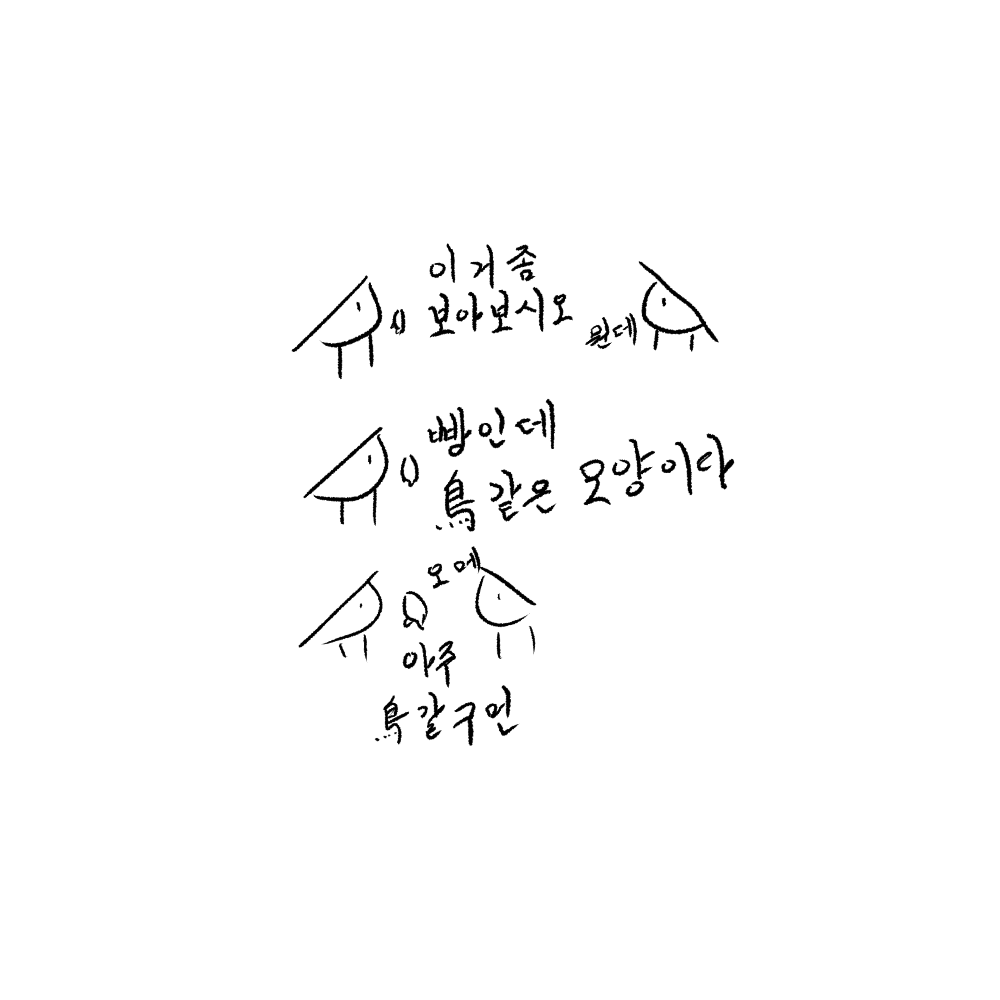 이거좀
보아보시오
뭔데
빵인데
鳥같은 모양이다
오메
아주
鳥같구먼